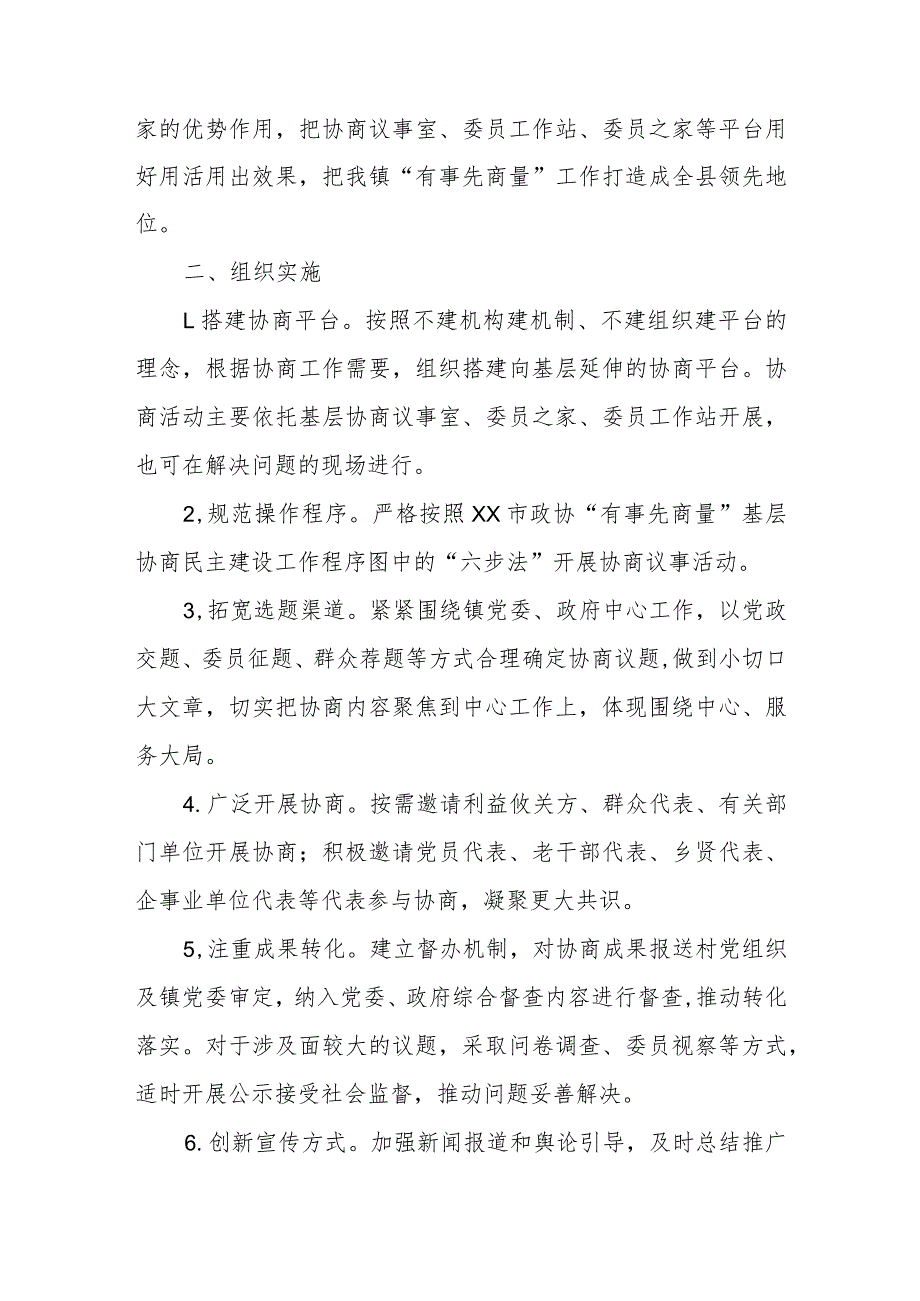 家的优势作用，把协商议事室、委员工作站、委员之家等平台用
好用活用出效果，把我镇“有事先商量”工作打造成全县领先地
位。
二、组织实施
L 搭建协商平台。按照不建机构建机制、不建组织建平台的
理念，根据协商工作需要，组织搭建向基层延伸的协商平台。协
商活动主要依托基层协商议事室、委员之家、委员工作站开展，
也可在解决问题的现场进行。
2,规范操作程序。严格按照 XX 市政协“有事先商量”基层
协商民主建设工作程序图中的“六步法”开展协商议事活动。
3,拓宽选题渠道。紧紧围绕镇党委、政府中心工作，以党政
交题、委员征题、群众荐题等方式合理确定协商议题,做到小切口
大文章，切实把协商内容聚焦到中心工作上，体现围绕中心、服
务大局。
4. 广泛开展协商。按需邀请利益攸关方、群众代表、有关部
门单位开展协商；积极邀请党员代表、老干部代表、乡贤代表、
企事业单位代表等代表参与协商，凝聚更大共识。
5,注重成果转化。建立督办机制，对协商成果报送村党组织
及镇党委审定，纳入党委、政府综合督查内容进行督查,推动转化
落实。对于涉及面较大的议题，采取问卷调查、委员视察等方式，
适时开展公示接受社会监督，推动问题妥善解决。
6. 创新宣传方式。加强新闻报道和舆论引导，及时总结推广